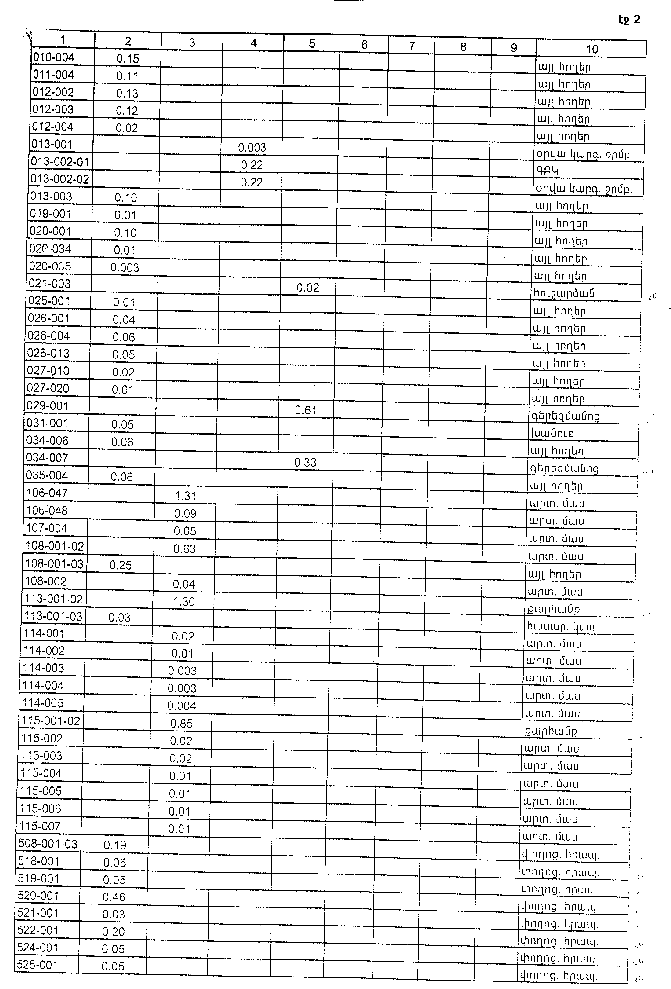 էջ 2
1 2 3 4 5 6 7 8 9 10
010-004 0.15 այլ հողեր
011-004 0.11 այլ հողեր
012-002 0.13 այլ հողեր
012-003 0.12 այլ հողեր
012-004 0.02 այլ հողեր
013-001 0.003 օրվա կարգ. շրմբ.
013-002-01 0.22 ԳԲԿ
013-002-02 0.22 օրվա կարգ. շրմբ.
013-003 0.10 այլ հողեր
019-001 0.01 այլ հողեր
020-001 0.10 այլ հողեր
020-034 0.01 այլ հողեր
020-035 0.003 այլ հողեր
021-003 0.02 հուշարձան
025-001 0.01 այլ հողեր
026-001 0.04 այլ հողեր
026-004 0.06 այլ հողեր
026-013 0.05 այլ հողեր
027-010 0.02 այլ հողեր
027-020 0.01 այլ հողեր
029-001 0.61 գերեզմանոց
031-001 0.05 խամուտ
034-006 0.06 այլ հողեր
034-007 0.33 գերեզմանոց
035-004 0.06 այլ հողեր
106-047 1.31 արտ. մաս
106-048 0.09 արտ. մաս
107-004 0.05 արտ. մաս
108-001-02 0.63 արտ. մաս
108-001-03 0.25 այլ հողեր
108-002 0.04 արտ. մաս
113-001-02 1.30 քարհանք
113-001-03 0.03
114-001 0.02 արտ. մաս
114-002 0.01 արտ. մաս
114-003 0.003 արտ. մաս
114-004 0.003 արտ. մաս
114-005 0.004 արտ. մաս
115-001-02 0.85 քարհանք
115-002 0.02 արտ. մաս
115-003 0.02 արտ. մաս
115-004 0.01 արտ. մաս
115-005 0.01 արտ. մաս
115-006 0.01 արտ. մաս
115-007 0.01 արտ. մաս
508-001-03 0.19 փողոց. հրապ.
518-001 0.06 փողոց. հրապ.
519-001 0.06 փողոց. հրապ.
520-001 0.46 փողոց. հրապ.
521-001 0.03 փողոց. հրապ.
522-001 0.20 փողոց. հրապ.
524-001 0.05 փողոց. հրապ.
525-001 0.05 փողոց. հրապ.